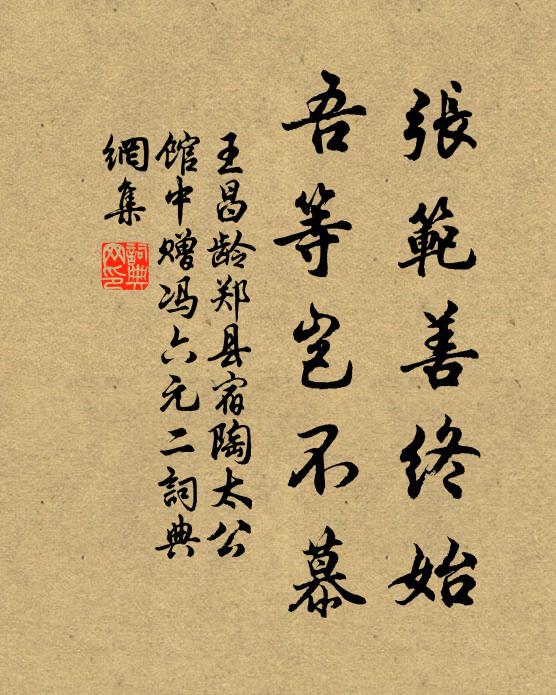 張範善終始
吾等豈不慕
王昌龄郑县宿陶太公
馆中赠冯六元二詞典
網集
詞典
网印